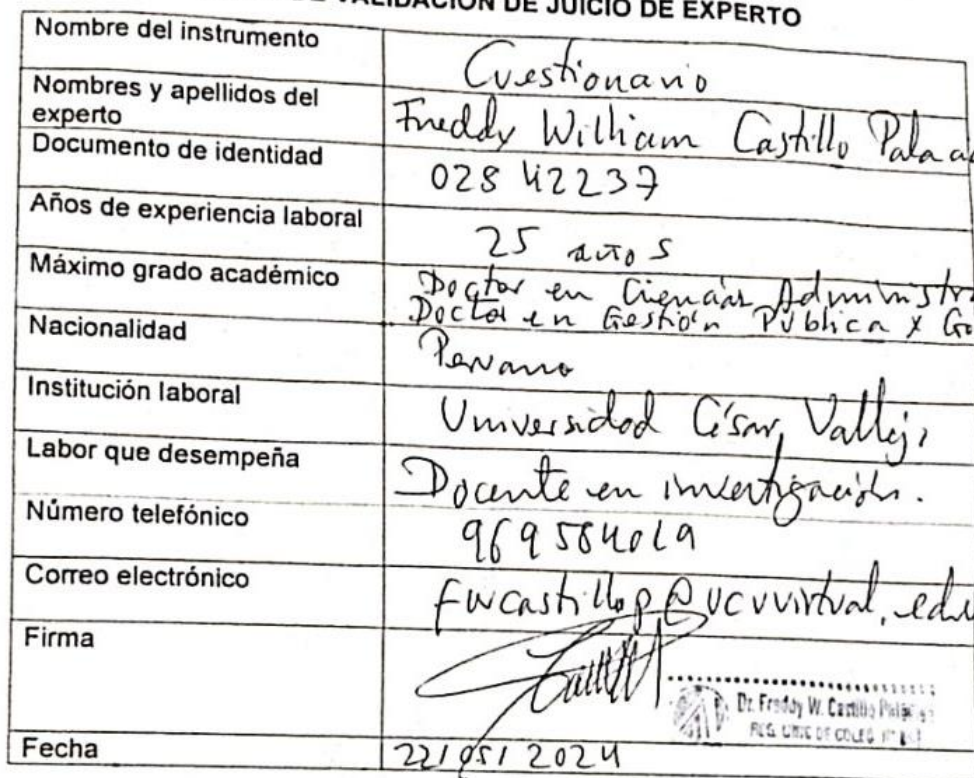 DE VALIDACIÓN DE JUICIO DE EXPERTO
Nombre del instrumento
Cuestionario
Nombres y apellidos del
experto
Freddy William Castillo
Documento de identidad
02842237
Años de experiencia laboral
25 años
Máximo grado académico
Doctor en Ciencias
Doctor en Gestión Pública y
Nacionalidad
Peruano
Institución laboral
Universidad César Vallejo
Labor que desempeña
Docente en investigación.
Número telefónico
969584019
Correo electrónico
fwcastillop@ucvvirtual.edu
Firma
Dr. Freddy W. Castillo
Fecha
22/05/2024